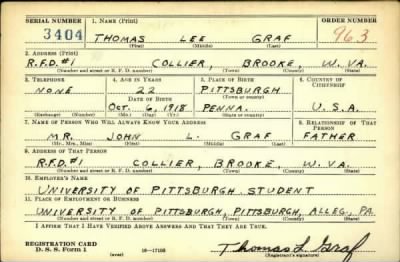 SERIAL NUMBER 1. NAME (Print) ORDER NUMBER
3404 THOMAS LEE GRAF 963
(First) (Middle) (Last)
2. ADDRESS (Print)
R.F.D.#1 COLLIER, BROOKE, W. VA.
(Number and street or R. F. D. number) (Town) (County) (State)
3. TELEPHONE 4. AGE IN YEARS 5. PLACE OF BIRTH 6. COUNTRY OF CITIZENSHIP
NONE 22 PITTSBURGH
DATE OF BIRTH (Town or county)
OCT. 6, 1918 PENNA. U.S.A.
(Exchange) (Number) (Mo.) (Day) (Yr.) (State or country)
7. NAME OF PERSON WHO WILL ALWAYS KNOW YOUR ADDRESS 8. RELATIONSHIP OF THAT PERSON
MR. JOHN L. GRAF FATHER
(Mr., Mrs., Miss) (First) (Middle) (Last)
9. ADDRESS OF THAT PERSON
R.F.D.#1 COLLIER, BROOKE, W. VA.
(Number and street or R. F. D. number) (Town) (County) (State)
10. EMPLOYER'S NAME
UNIVERSITY OF PITTSBURGH STUDENT
11. PLACE OF EMPLOYMENT OR BUSINESS
UNIVERSITY OF PITTSBURGH, PITTSBURGH, ALLEG., PA.
(Number and street or R. F. D. number) (Town) (County) (State)
I AFFIRM THAT I HAVE VERIFIED ABOVE ANSWERS AND THAT THEY ARE TRUE.
REGISTRATION CARD
D. S. S. Form 1 (over) 16—17105 Thomas L Graf
(Registrant's signature)